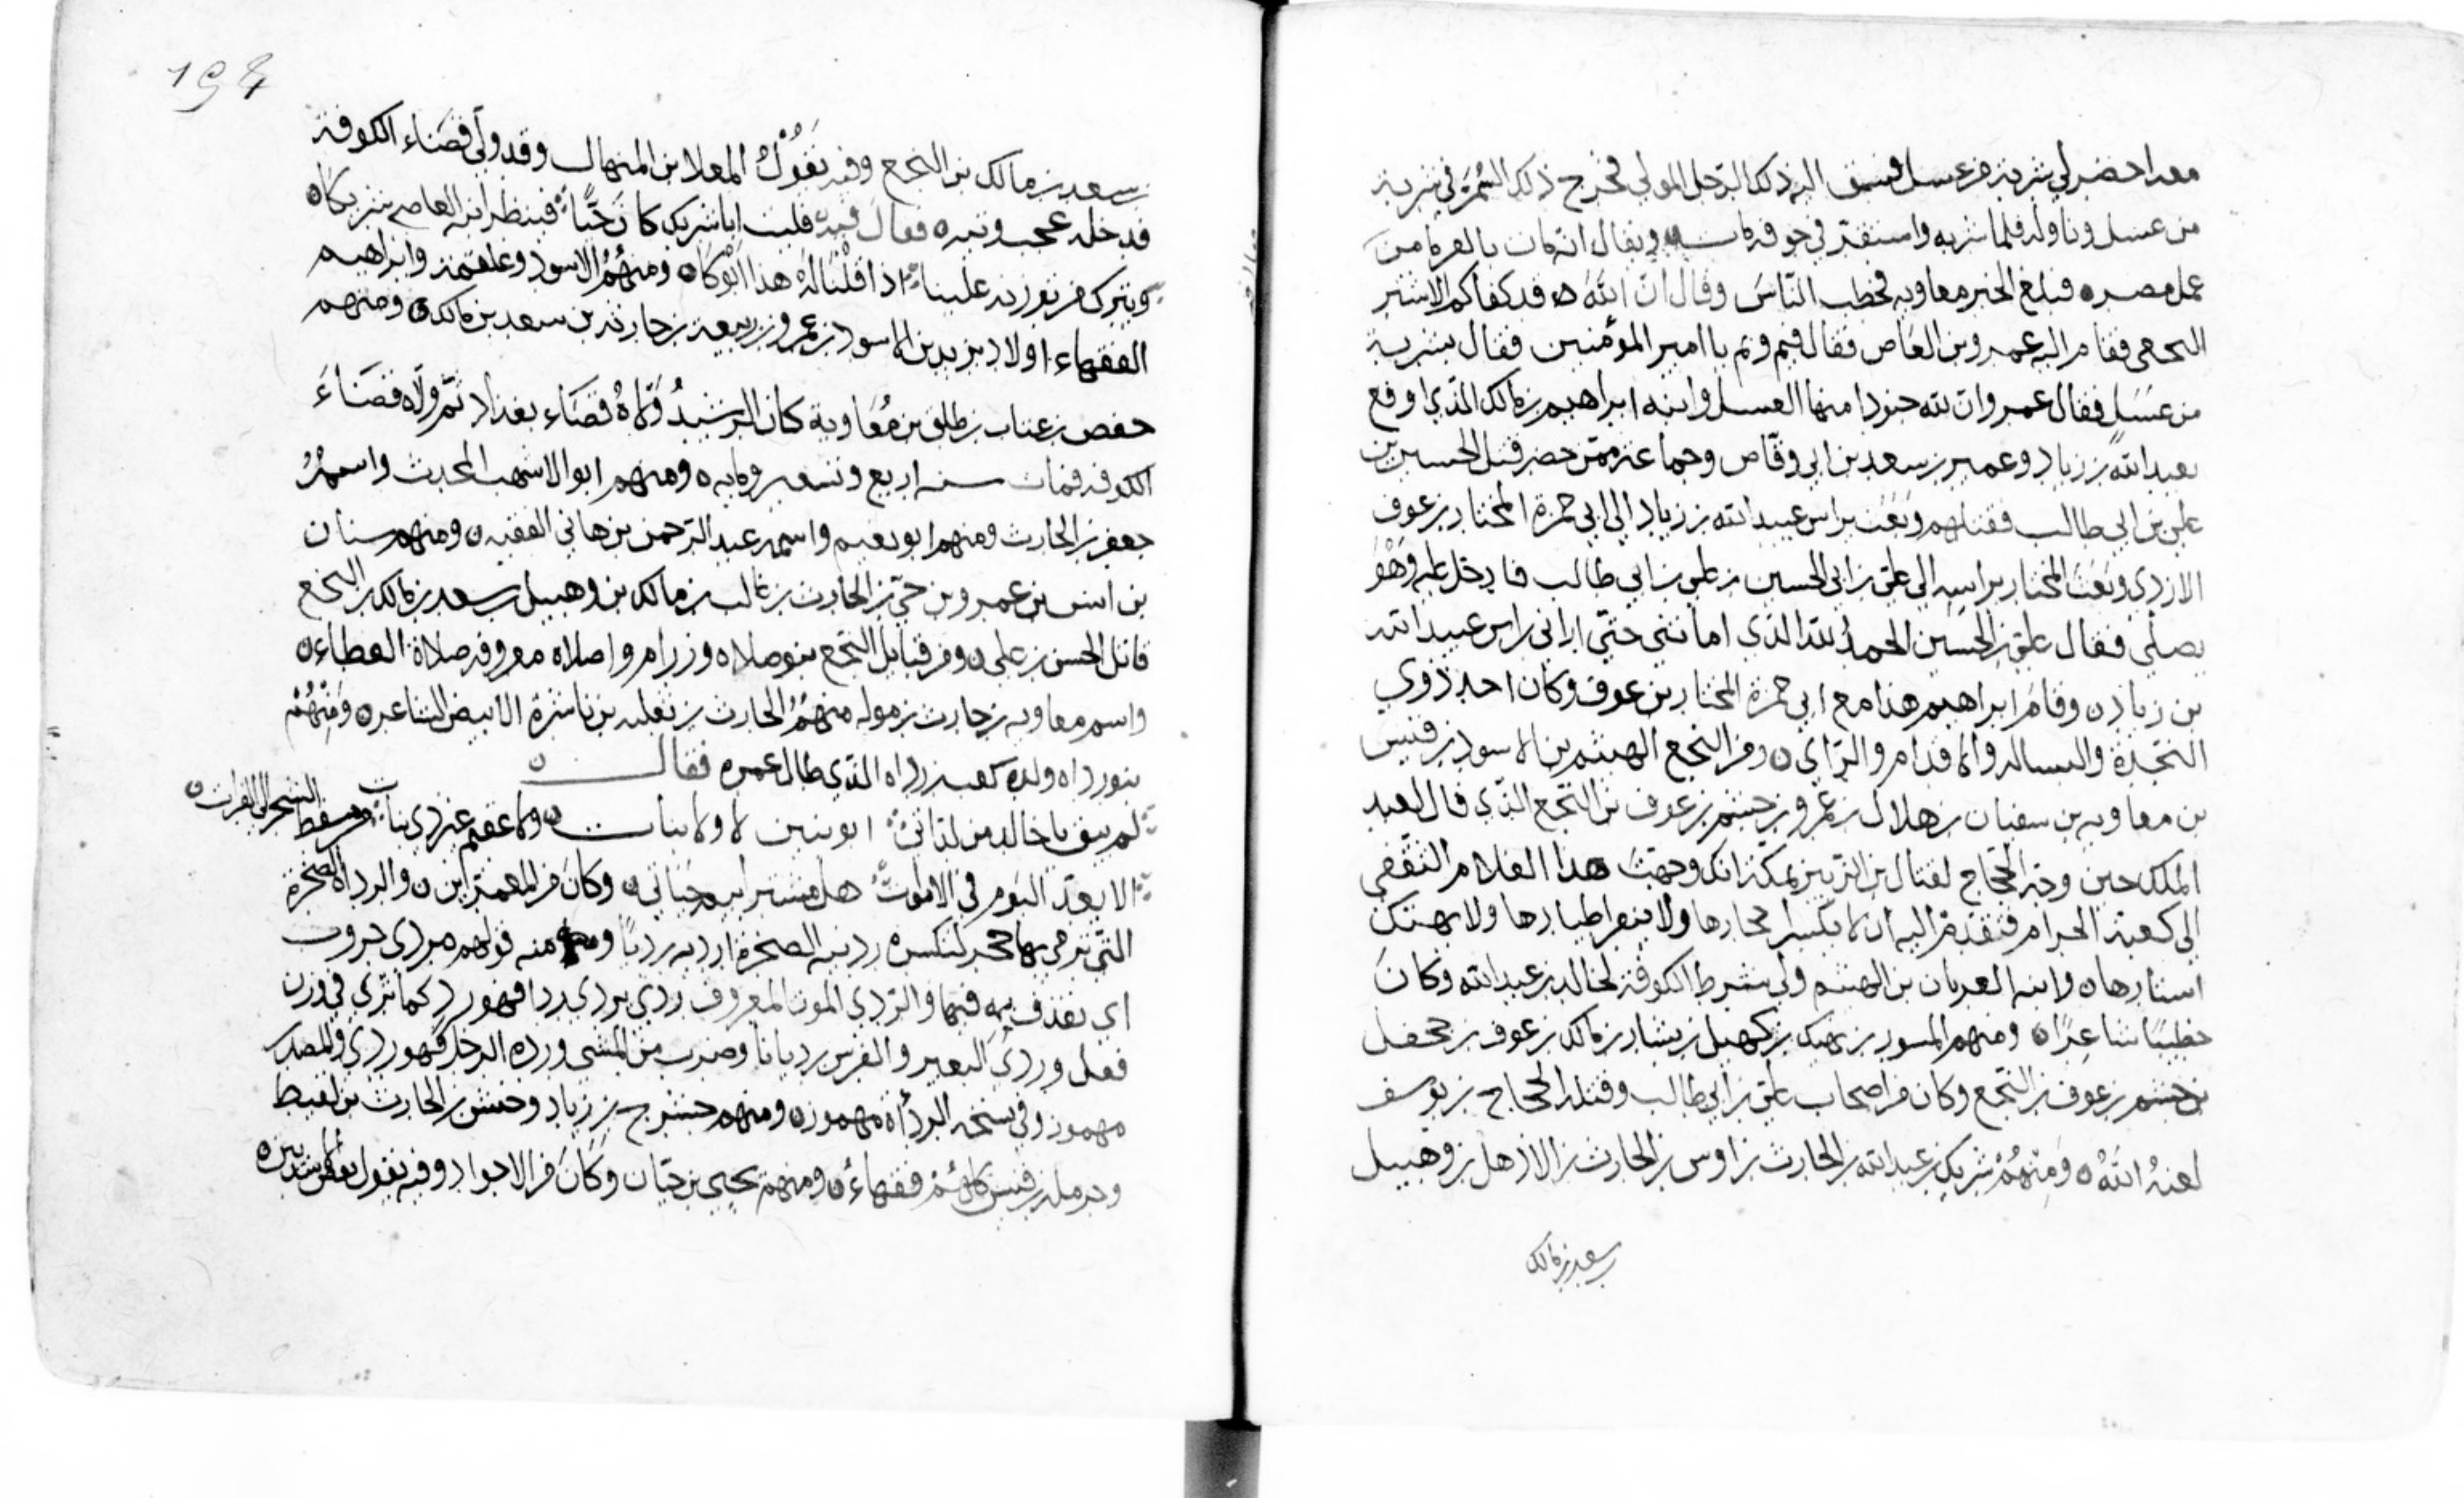 معه احضر لي شربة من عسل فسبق اليه ذلك الرجل المولي فخرج ذلك السم في شربة
من عسل وناوله فلما شربه واستقر في جوفه مات ويقال انه مات بالعرما من
عمل مصر ه فبلغ الخبر معاويه فخطب الناس وقال ان الله قد كفاكم الاشتر
النخعي فقام اليه عمرو بن العاص فقال فيم وبم يا امير المؤمنين فقال بشربة
من عسل فقال عمرو ان لله جنودا منها العسل وابنه ابراهيم بن مالك الذي اوقع
بعبد الله بن زياد وعمير بن سعد بن ابي وقاص وجماعة ممن حضر قتل الحسين بن
علي بن ابي طالب فقتلهم وبعث براس عبيد الله بن زياد الي ابي حمزة المختار بن عوف
الازدي وبعث المختار براسه الى علي بن ابي الحسين بن علي بن ابي طالب فادخل عليه وهو
يصلي فقال علي بن الحسين الحمد لله الذي اماتني حتى اراني راس عبيد الله
بن زياد ن وقام ابراهيم هذا مع ابي حمزة المختار بن عوف وكان احد ذوي
النجدة والبساله والاقدام والراي ن ومن النخع الهيثم بن الاسود بن قيس
بن معاويه بن سفيان بن هلال بن عمرو بن جشم بن عوف بن النخع الذي قال لعبد
الملك حين وجه الحجاج لقتال بن الزبير بمكة انك وجهت هذا الغلام الثقفي
الى كعبة الحرام فتقدم اليه ان لا يكسر احجارها ولا ينفر اطيارها ولا يهتك
استارها ن وابنه العريان بن الهيثم ولي شرط الكوفة لخالد بن عبد الله وكان
خطيبا شاعرا ن ومنهم المسور بن نهيك بن كهيل بن يشار بن مالك بن عوف بن جحفل
بن جشم بن عوف بن النخع وكان من اصحاب علي بن ابي طالب وقتله الحجاج بن يوسف
لعنه الله ن ومنهم شريك بن عبد الله بن الحارث بن اوس بن الحارث بن الاذهل بن وهبيل
سعد بن مالك
194
بن سعد بن مالك بن النخع وفيه يقول المعلا بن المنهال وقد ولي قضاء الكوفة
قد دخله عجب وتيه فقال فيه فليت ابا شريك كان حيا فينظر انه العاصم شريكان
ويترك من تورزه علينا اذا قلنا له هذا ابوكان ومنهم الاسود وعلقمة وابراهيم
الفقهاء اولاد يزيد بن الاسود بن عمرو بن ربيعة بن حارثة بن سعد بن مالك ن ومنهم
حفص بن عتاب بن طلق بن معاوية كان الرشيد ولاه قضاء بغداد ثم ولاه قضاء
الكوفه فمات سنه اربع وتسعين ومايه ه ومنهم ابو الاشهب المحدث واسمه
جعفر بن الحارث ومنهم ابو نعيم واسمه عبد الرحمن بن هاني الفقيه ن ومنهم سنان
بن انس بن عمرو بن حي بن الحارث بن غالب بن مالك بن وهبيل بن سعد بن مالك بن النخع
قاتل الحسن بن علي ن ومن قبايل النخع بنو صلاه ورزام واصلاه معروفه صلاة العطاء ن
واسم معاويه بن حارث بن موله منهم الحارث بن ثعلبه بن ناشرة الابيض الشاعر ن ومنهم
بنو رداه ولده كعب بن رداه الذي طال عمره فقال ن
لم يبق يا خالد من لداتي ابو بنين لا ولا بنات ن ولا عقيم غير ذي بنات من مسقط الشحر الى الفرات ن
الا يعد اليوم في الاموات هل مشتر ابيعه حياتي ن وكان من المعمرين ن والرداه الصخرة
التي ترمي بها حجر لتكسره رديته الصخرة ارديه رديا ومنه قولهم مردى حروب
اي يقذف به فيها والردي الموت المعروف ردي يردي ردا فهو رد كما ترى في وزن
فعل وردي البعير والفرس رديانا وضرب من المشي ورده الرجل فهو ردي والمصدر
مهموز وفي نسخه الرداة مهموزه ومنهم حشرج بن زياد وحنش بن الحارث بن لقيط
وحرمله بن قيس كلهم فقهاء ن ومنهم يحيى بن حيان وكان من الاجواد وفيه يقول